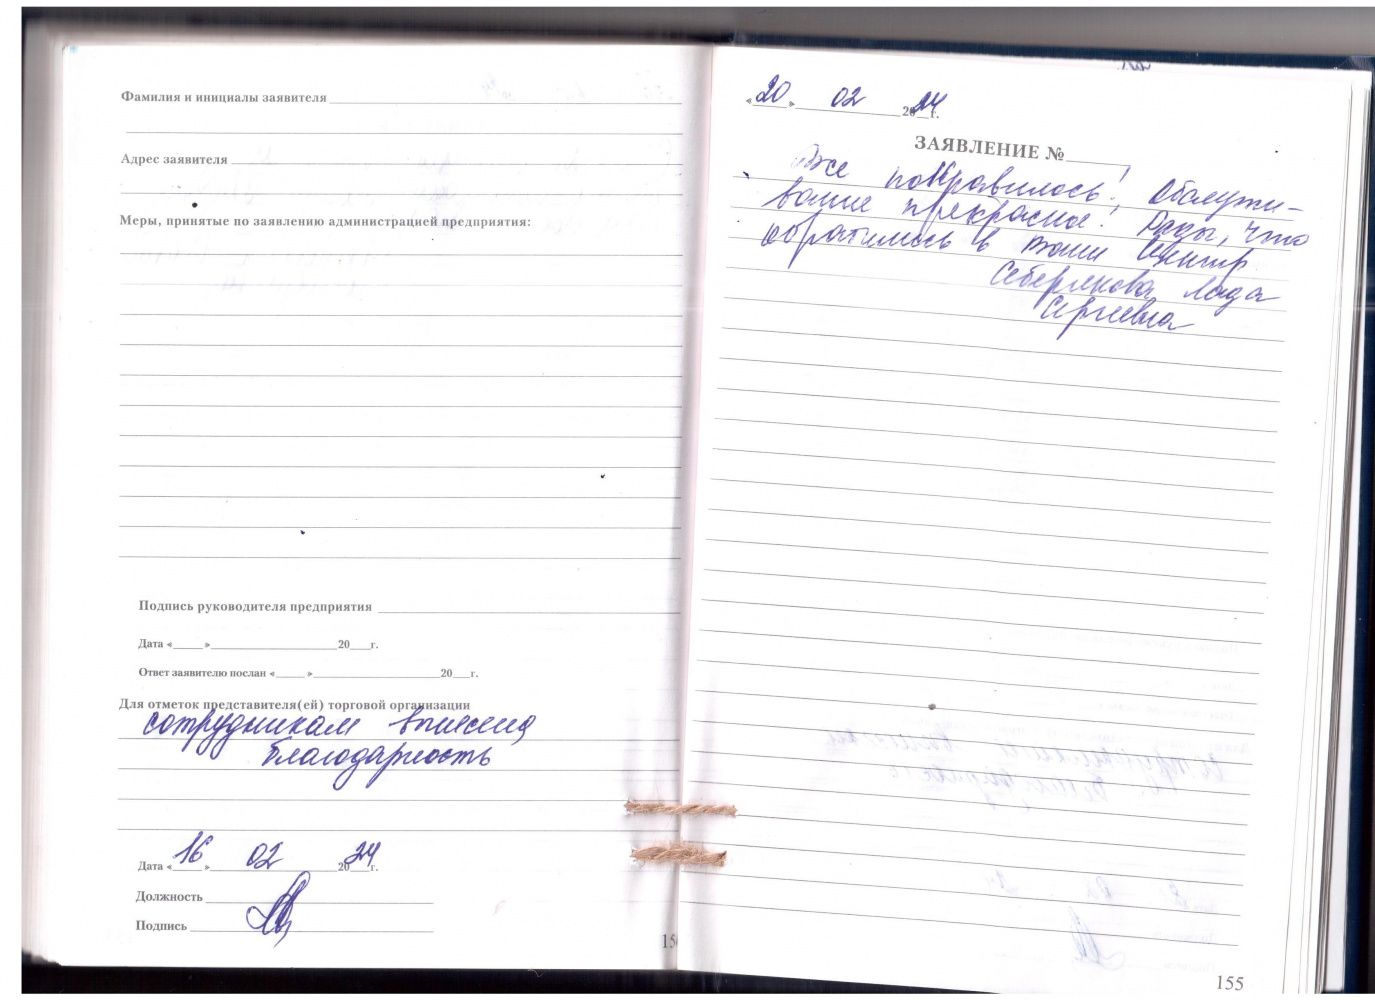 Фамилия и инициалы заявителя
Адрес заявителя
Меры, принятые по заявлению администрацией предприятия:
Подпись руководителя предприятия
Дата « » 20 г.
Ответ заявителю послан « » 20 г.
Для отметок представителя(ей) торговой организации
сотрудникам внесена
благодарность
Дата «16» 02 2024 г.
Должность
Подпись
15
«20» 02 2024 г.
ЗАЯВЛЕНИЕ №
Все понравилось! Обслужи-
вание прекрасное! Рады, что
обратились в ваш центр
Лада
Сергеевна
155